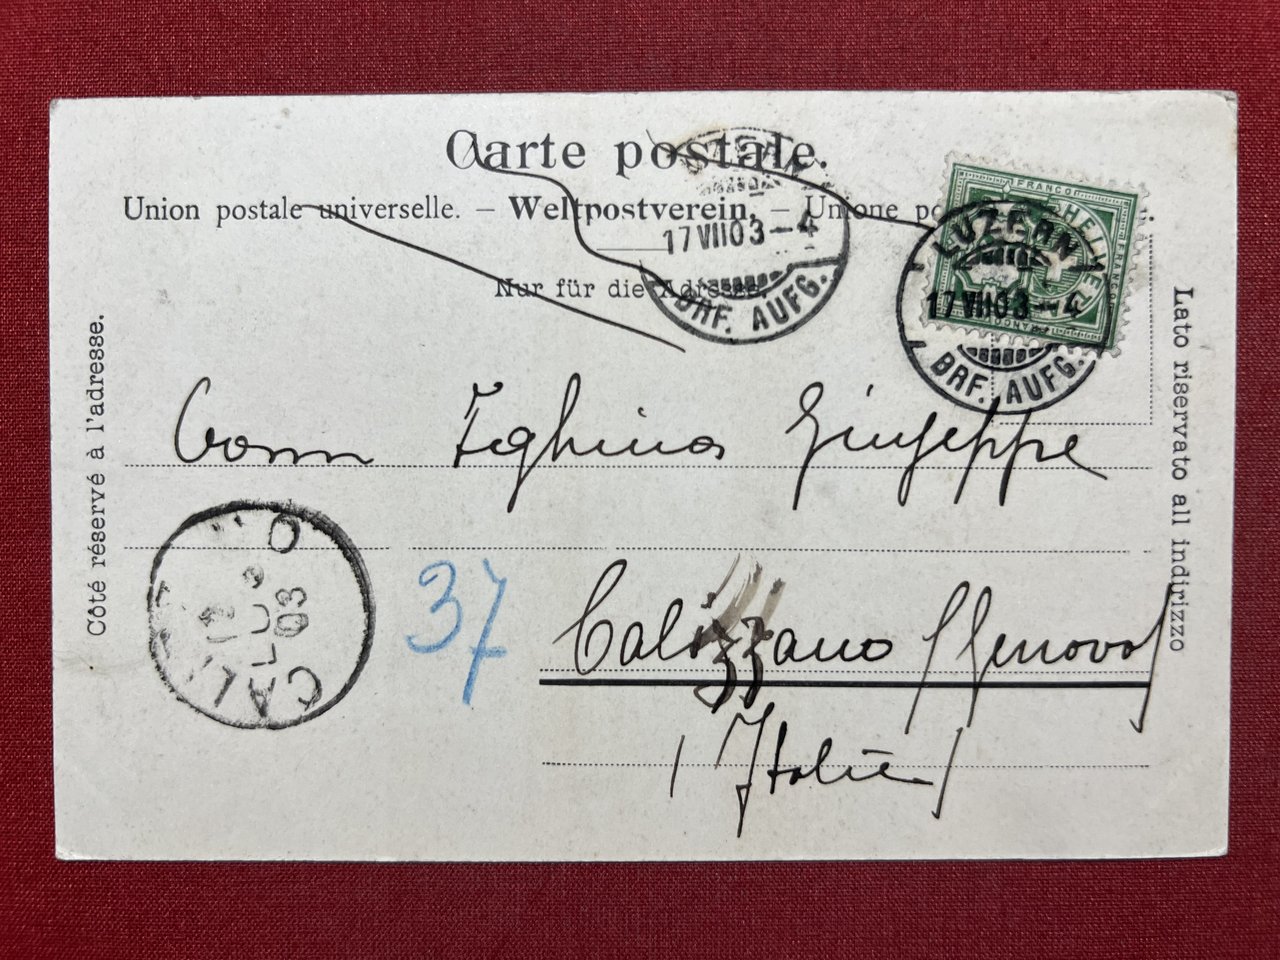 Carte postale.
Union postale universelle. – Weltpostverein. – Unione
Nur für die Adresse.
17 VII 03 – 4
BRF. AUFG.
FRANCO
HELVETIA
LUZERN
17 VII 03 – 4
BRF. AUFG.
Côté réservé à l'adresse.
Lato riservato all indirizzo
Giuseppe
LUG
03
37
Calizzano (Genova)
(Italie)